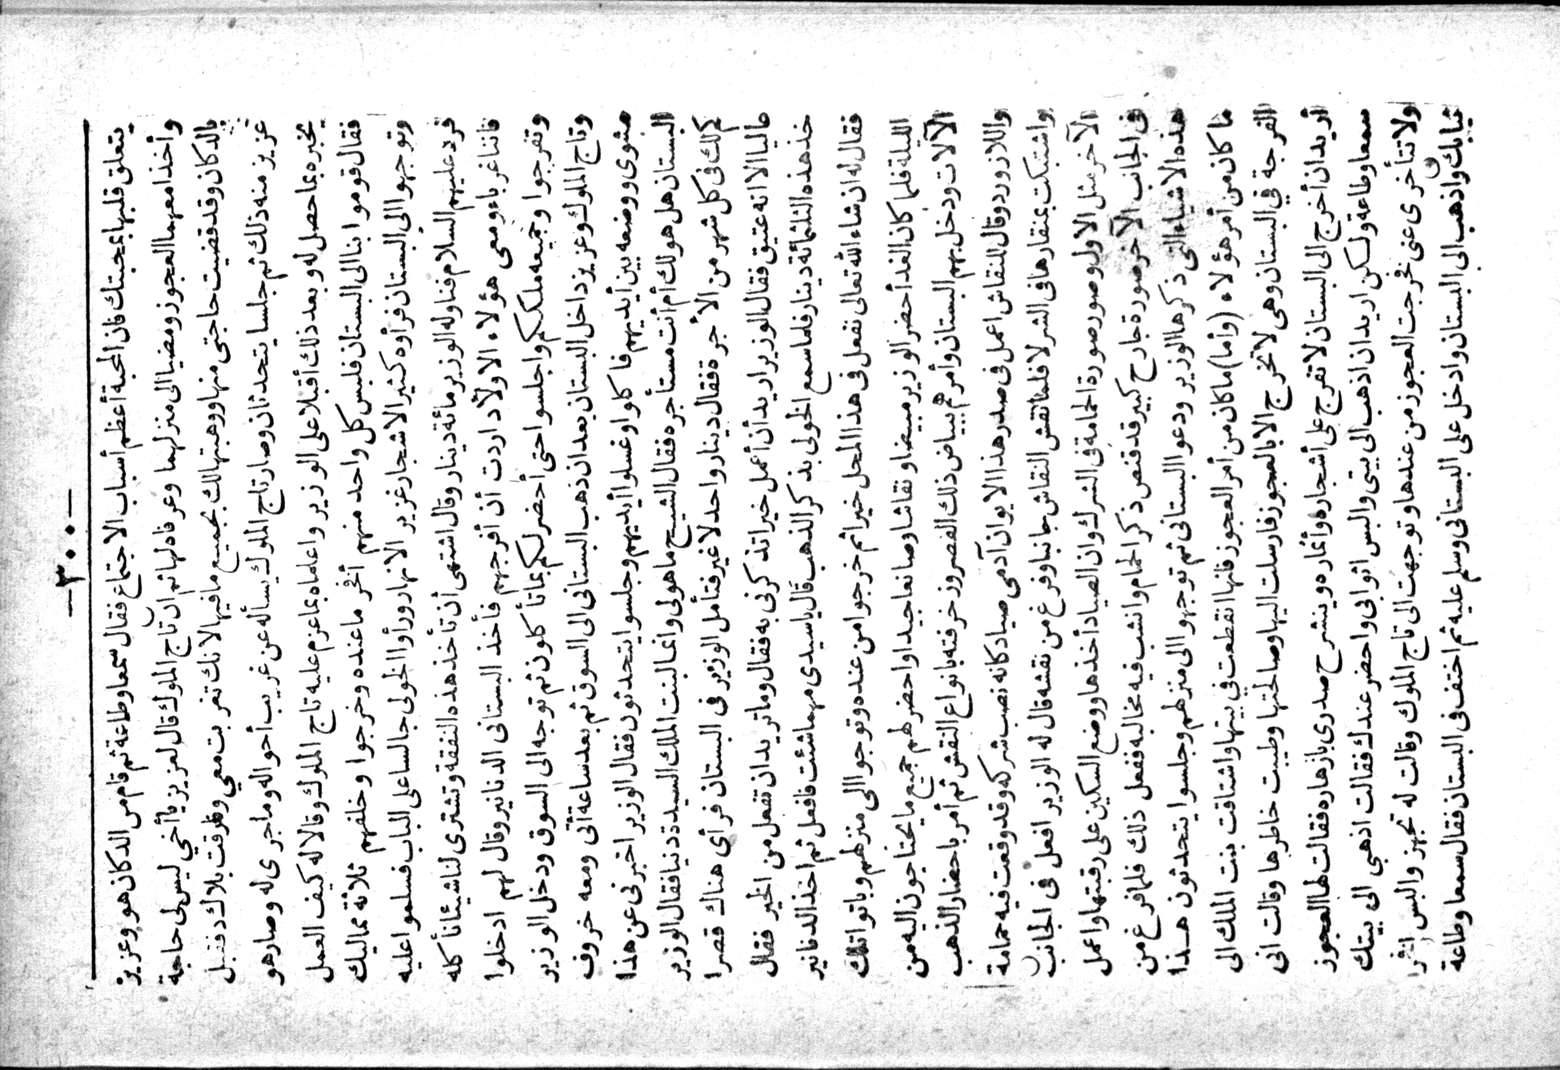 — ٣٠٠ —
يتعلق قلبها بمحبتك فان المحبة أعظم أسباب الاجتماع فقال سمعا وطاعة ثم قام من الدكان هو وعزيز
وأخذا معهما العجوز ومضيا الى منزلهما وعرفاه لها ثم ان تاج الملوك قال لعزيز يا أخي ليس لى حاجة
بالدكان وقد قضيت حاجتى منها ووهبتها لك بجميع ما فيها لانك تغربت معي وفارقت بلادك فقبل
عزيز منه ذلك ثم جلسا يتحدثان وصار تاج الملوك يسأله عن غريب أحواله وما جرى له وصار هو
يخبره بما حصل له وبعد ذلك أقبلا على الوزير واعلماه بما عزم عليه تاج الملوك وقالا له كيف العمل
فقال قوموا بنا الى البستان فلبس كل واحد منهم أفخر ما عنده وخرجوا وخلفهم ثلاثة مماليك
وتوجهوا الى البستان فرأوه كثير الاشجار غزير الانهار ورأوا الخولى جالسا على الباب فسلموا عليه
فرد عليهم السلام فناوله الوزير مائة دينار وقال اشتهى أن تأخذ هذه النفقة وتشترى لنا شيئا نأكله
فاننا غرباء ومعى هؤلاء الاولاد اردت أن أفرجهم فأخذ البستانى الدنانير وقال لهم ادخلوا
وتفرجوا وجميعه ملككم واجلسوا حتى أحضر لكم بما تأكلون ثم توجه الى السوق ودخل الوزير
وتاج الملوك وعزيز داخل البستان بعد ان ذهب البستانى الى السوق ثم بعد ساعة أتى ومعه خروف
مشوى ووضعه بين أيديهم فأكلوا وغسلوا أيديهم وجلسوا يتحدثون فقال الوزير اخبرنى عن هذا
البستان هل هو لك أم أنت مستأجره فقال الشيخ ما هو لى وانما لبنت الملك السيدة دنيا فقال الوزير
كم لك فى كل شهر من الأجرة فقال دينار واحد لا غير فتأمل الوزير فى البستان فرأى هناك قصرا
عاليا الا انه عتيق فقال الوزير اريد أن أعمل خيرا تذكرنى به فقال وما تريد ان تفعل من الخير فقال
خذ هذه الثلثمائة دينار فلما سمع الخولى بذكر الذهب قال يا سيدى مهما شئت فافعل ثم اخذ الدنانير
فقال له ان شاء الله تعالى نفعل فى هذا المحل خيرا ثم خرجوا من عنده وتوجهوا الى منزلهم وباتوا تلك
الليلة فلما كان الغد أحضر الوزير مبيضا ونقاشا وصانعا جيدا واحضر لهم جميع ما يحتاجون اليه من
الآلات ودخل بهم البستان وأمرهم ببياض ذلك القصر وزخرفته بانواع النقش ثم أمر باحضار الذهب
واللازورد وقال للنقاش اعمل فى صدر هذا الايوان آدمى صياد كانه نصب شركه وقد وقعت فيه حمامة
واشتبكت بمنقارها فى الشرك فلما نقش النقاش جانبا وفرغ من نقشه قال له الوزير افعل فى الجانب
الآخر مثل الاول وصور صورة الحمامة فى الشرك وان الصياد أخذها ووضع السكين على رقبتها واعمل
فى الجانب الآخر صورة جارح كبير قد قنص ذكر الحمام وانشب فيه مخالبه ففعل ذلك فلما فرغ من
هذه الاشياء التى ذكرها الوزير ودعوا البستانى ثم توجهوا الى منزلهم وجلسوا يتحدثون هذا
ما كان من أمر هؤلاء (وأما) ما كان من أمر العجوز فانها انقطعت فى بيتها واشتاقت بنت الملك الى
الفرجة فى البستان وهى لا تخرج الا بالعجوز فارسلت اليها وصالحتها وطيبت خاطرها وقالت انى
أريد ان أخرج الى البستان لاتفرج على أشجاره وأثماره وينشرح صدرى بازهاره فقالت لها العجوز
سمعا وطاعة ولكن اريد ان اذهب الى بيتى والبس اثوابى واحضر عندك فقالت اذهبى الى بيتك
ولا تتأخرى عنى فخرجت العجوز من عندها وتوجهت الى تاج الملوك وقالت له تجهز والبس افخر
ثيابك واذهب الى البستان وادخل على البستانى وسلم عليه ثم اختف فى البستان فقال سمعا وطاعة